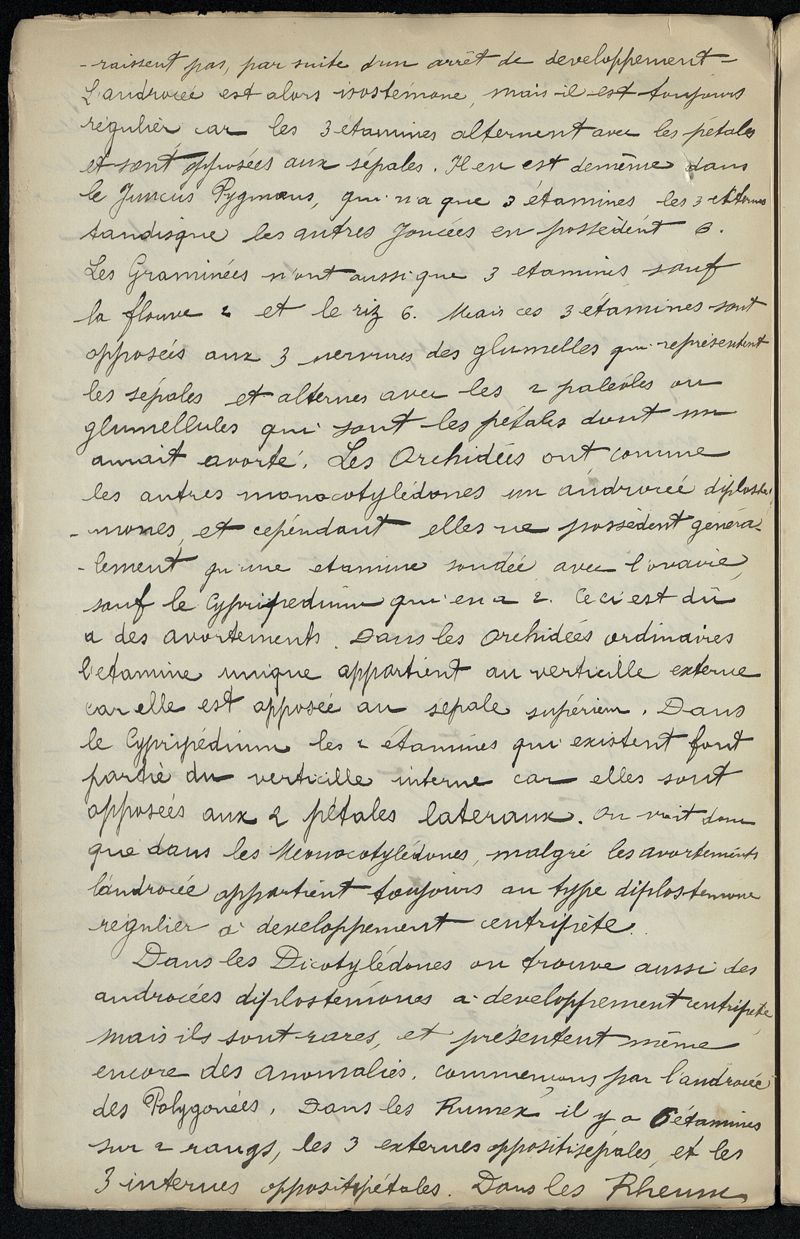 -raissent pas, par suite d'un arrêt de developpement-
L'androcée est alors isostémone, mais il est toujours
régulier car les 3 étamines alternent avec les pétales
et sont opposées aux sépales. Il en est demême dans
le Juncus Pygmæus, qui n'a que 3 étamines les 3 externes
tandisque les autres Joncées en possèdent 6.
Les Graminées n'ont aussi que 3 etamines sauf
la flouve 2 et le riz 6. Mais ces 3 étamines sont
opposées aux 3 nervures des glumelles qui représentent
les sépales et alternes avec les 2 paléoles ou
glumellules qui sont les pétales dont un
aurait avorté. Les Orchidées ont comme
les autres monocotylédones un androcée diplosté
-mones, et cependant elles ne possèdent généra-
-lement qu'une etamine soudée avec l'ovaire,
sauf le Cypripedium qui en a 2. Ceci est dû
a des avortements. Dans les Orchidées ordinaires
l'etamine unique appartient au verticille externe
car elle est opposée au sepale supérieur. Dans
le Cypripédium les 2 étamines qui existent font
partie du verticille interne car elles sont
opposées aux 2 pétales lateraux. On voit donc
que dans les Monocotylédones, malgré les avortements
l'androcée appartient toujours au type diplostemone
regulier à developpement centripète.
Dans les Dicotylédones on trouve aussi des
androcées diplostémones a developpement centripète,
mais ils sont rares, et présentent même
encore des anomalies. commencons par l'androcée
des Polygonées. Dans les Rumex, il y a 6 étamines
sur 2 rangs, les 3 externes oppositisepales, et les
3 internes oppositipétales. Dans les Rheum